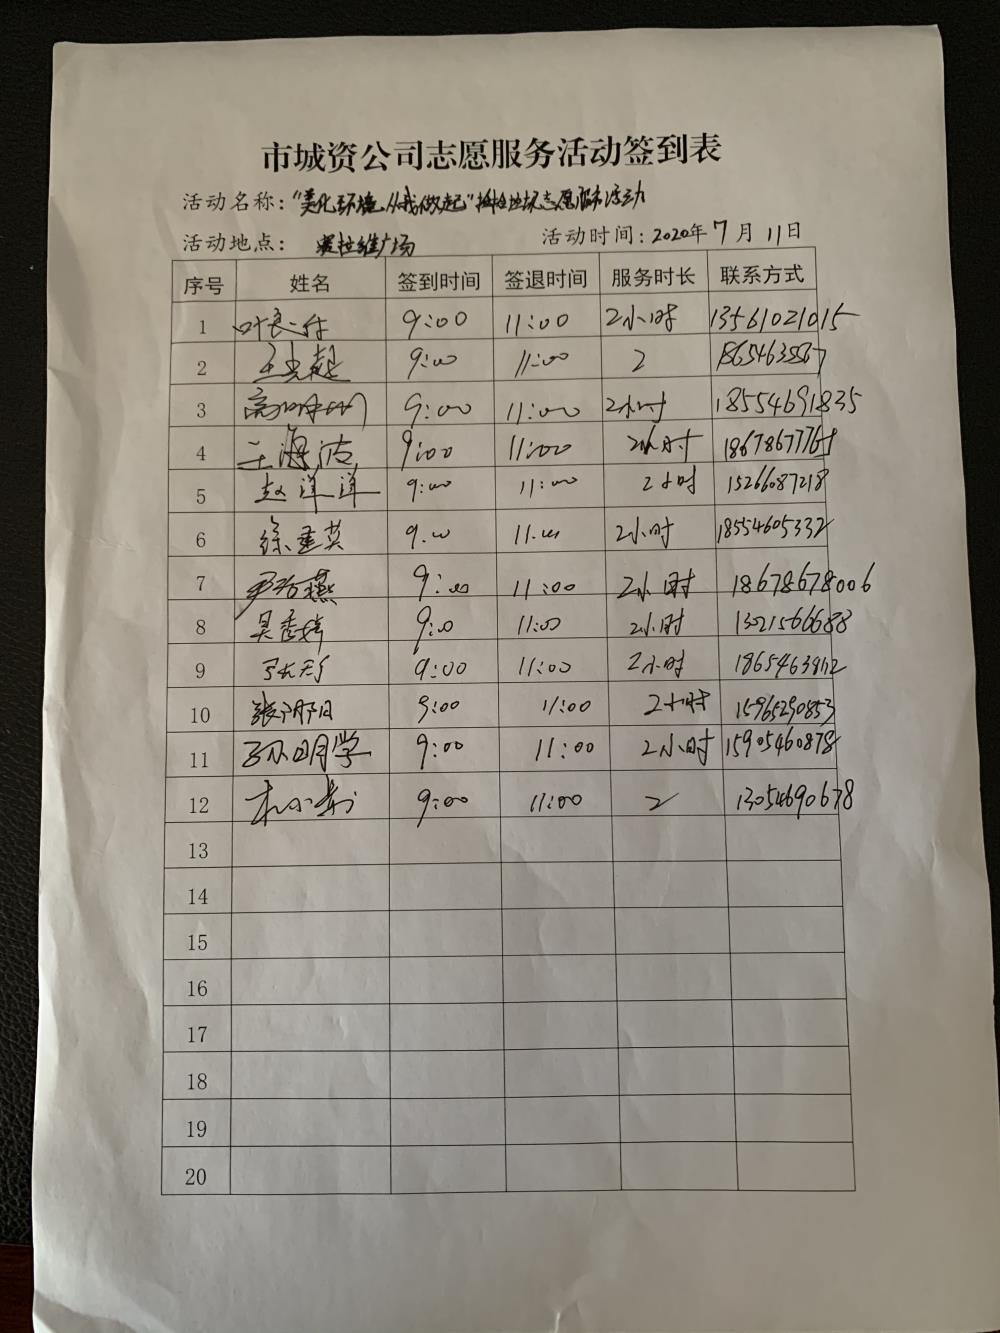 市城资公司志愿服务活动签到表
活动名称："美化环境 从我做起"捡拾垃圾志愿服务活动
活动地点： 广场 活动时间：2020年7月11日
序号 姓名 签到时间 签退时间 服务时长 联系方式
1 9:00 11:00 2小时 13561021015
2 9:00 11:00 2
3 9:00 11:00 2小时 18554691835
4 王海波 9:00 11:00 2小时
5 赵洋洋 9:00 11:00 2小时 15266087218
6 9:00 11:00 2小时 18554605332
7 9:00 11:00 2小时 18678678006
8 9:00 11:00 2小时 13021566688
9 9:00 11:00 2小时
10 张阴阳 9:00 11:00 2小时 15965290853
11 9:00 11:00 2小时 15905460878
12 9:00 11:00 2 13054690678
13
14
15
16
17
18
19
20